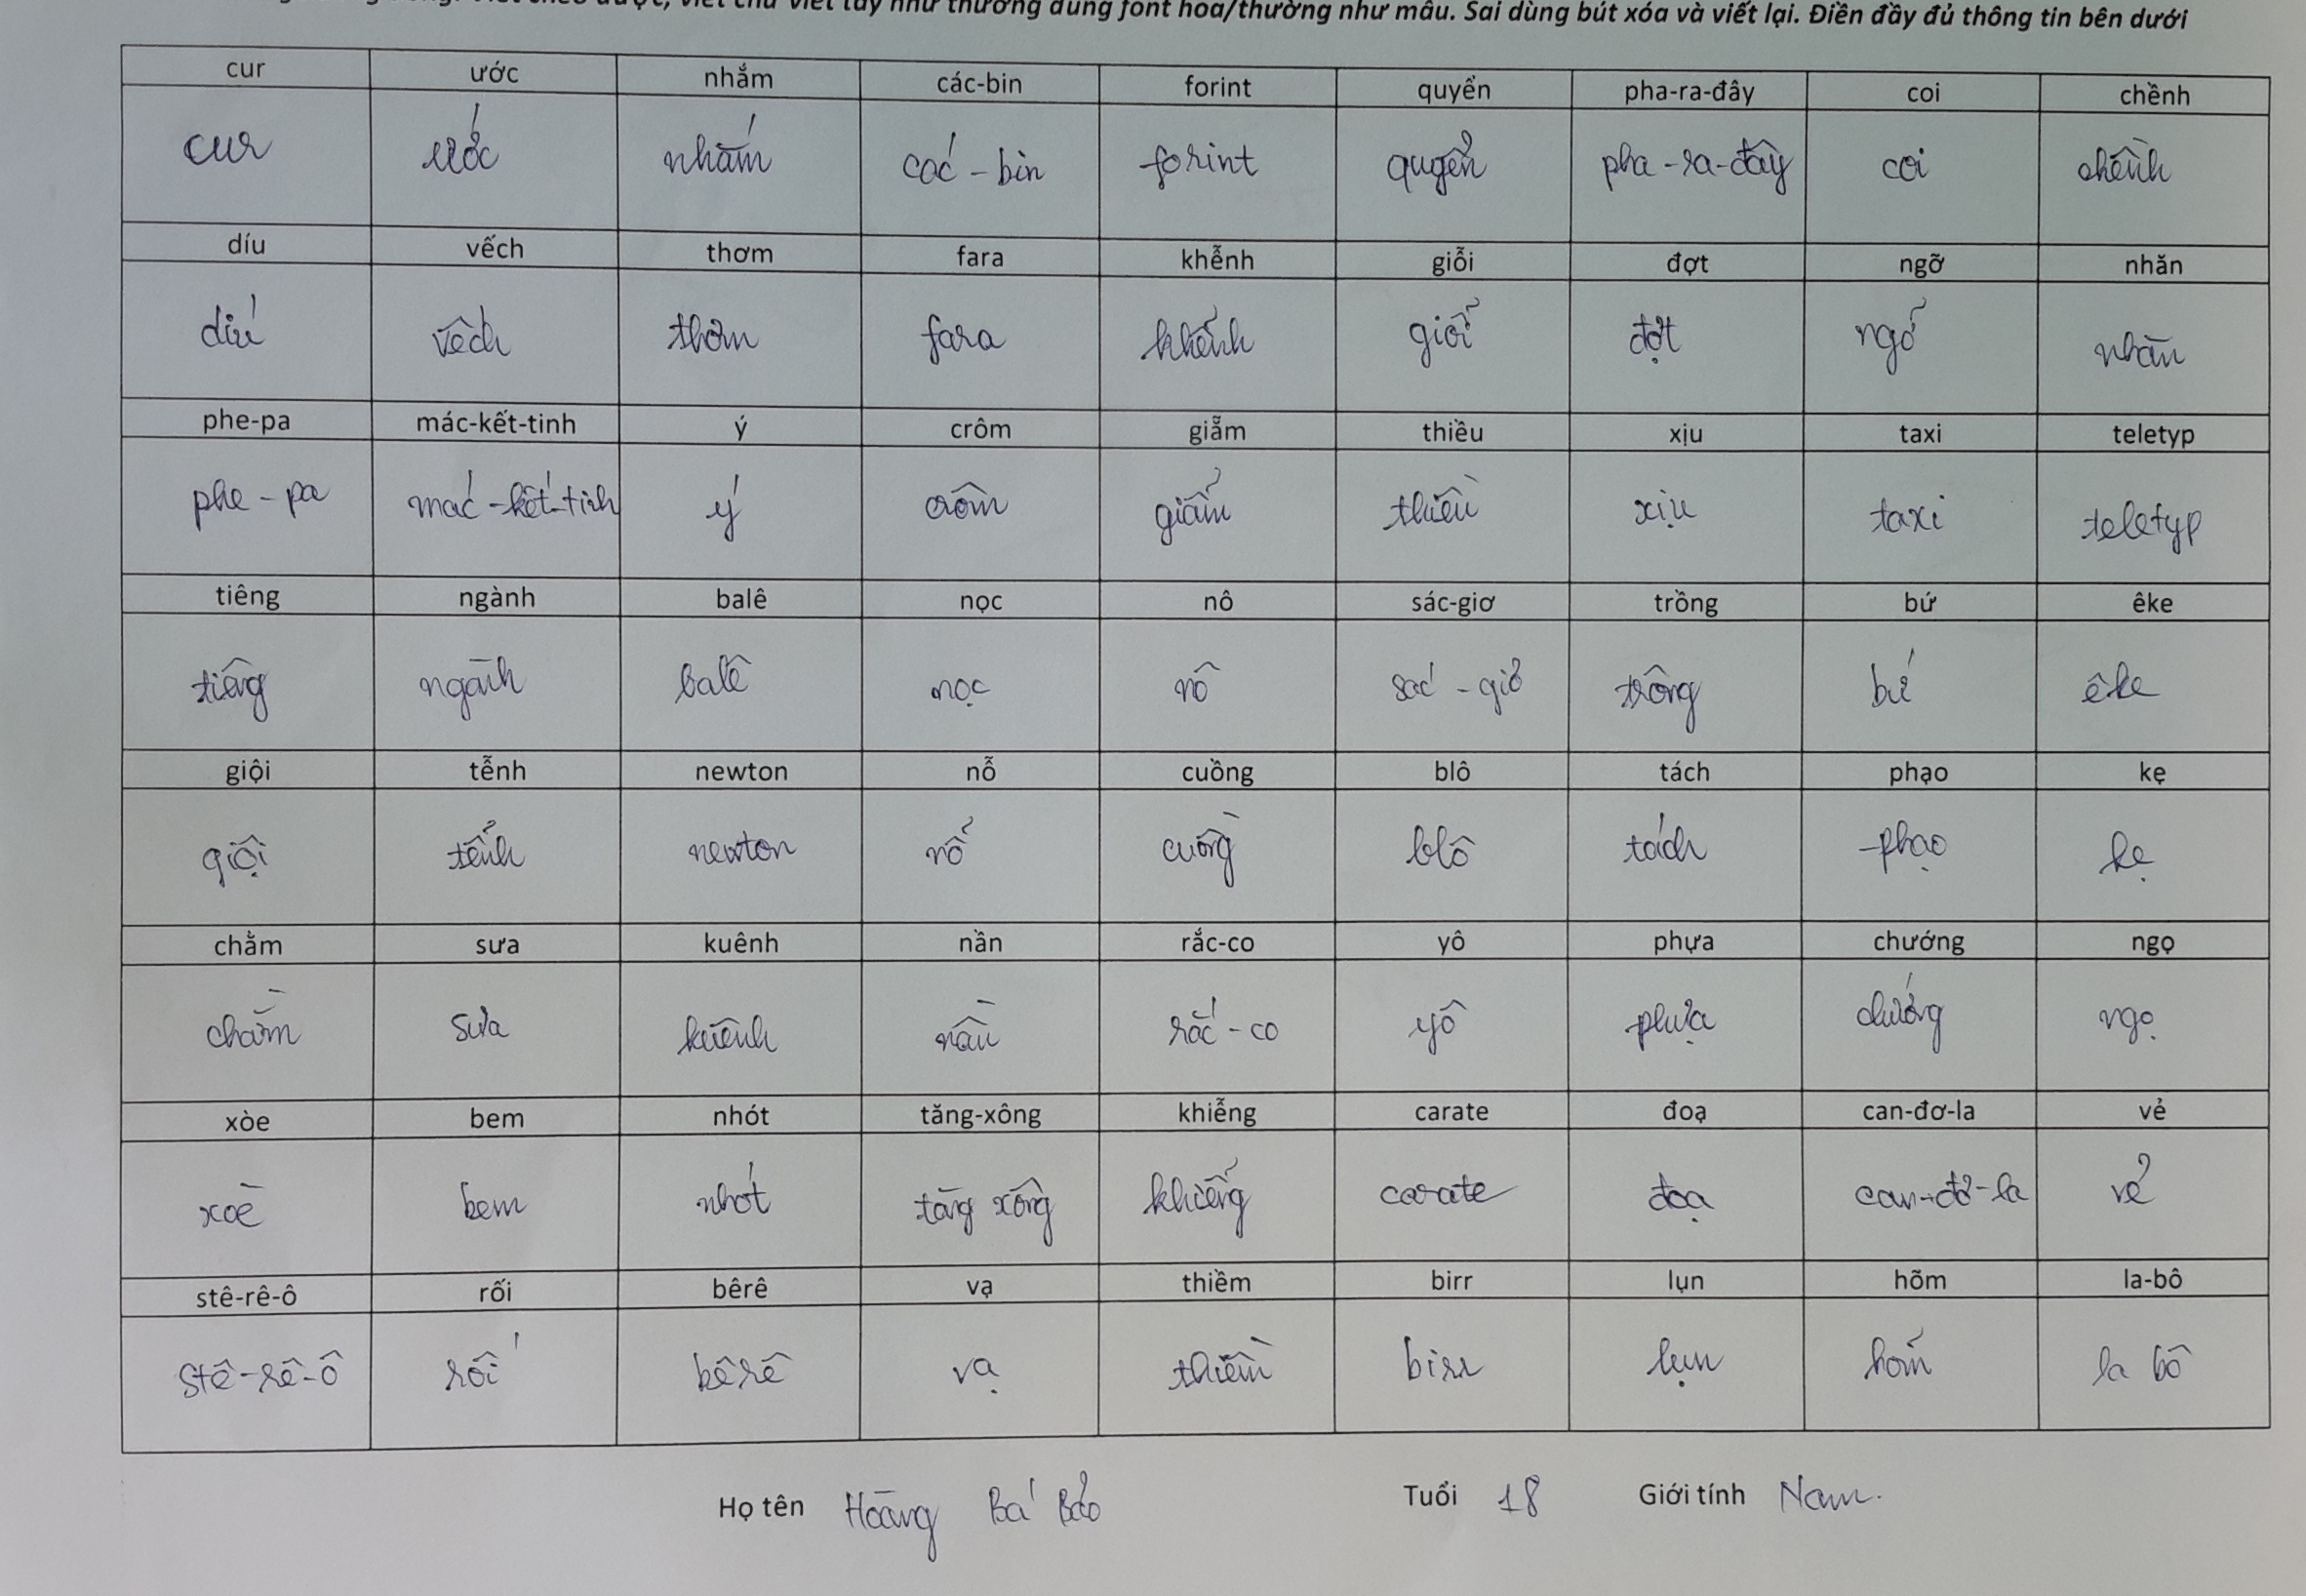 viết chữ viết tay như thường dùng font hoa/thường như mẫu. Sai dùng bút xóa và viết lại. Điền đầy đủ thông tin bên dưới
cur ước nhắm các-bin forint quyển pha-ra-đây coi chềnh
cur ước nhắm các-bin forint quyển pha-ra-đây coi chềnh
díu vếch thơm fara khễnh giỗi đợt ngỡ nhăn
díu vếch thơm fara khễnh giỗi đợt ngỡ nhăn
phe-pa mác-kết-tinh ý crôm giẵm thiều xịu taxi teletyp
phe-pa mác-kết-tinh ý crôm giẵm thiều xịu taxi teletyp
tiêng ngành balê nọc nô sác-giơ trồng bứ êke
tiêng ngành balê nọc nô sác-giơ trồng bứ êke
giội tễnh newton nỗ cuồng blô tách phạo kẹ
giội tễnh newton nỗ cuồng blô tách phạo kẹ
chằm sưa kuênh nần rắc-co yô phựa chướng ngọ
chằm sưa kuênh nần rắc-co yô phựa chướng ngọ
xòe bem nhót tăng-xông khiễng carate đoạ can-đơ-la vẻ
xoè bem nhót tăng xông khiễng carate đoạ can-đơ-la vẻ
stê-rê-ô rối bêrê vạ thiềm birr lụn hõm la-bô
stê-rê-ô rối bêrê vạ thiềm birr lụn hõm la bô
Họ tên Hoàng Bá Bảo Tuổi 18 Giới tính Nam.